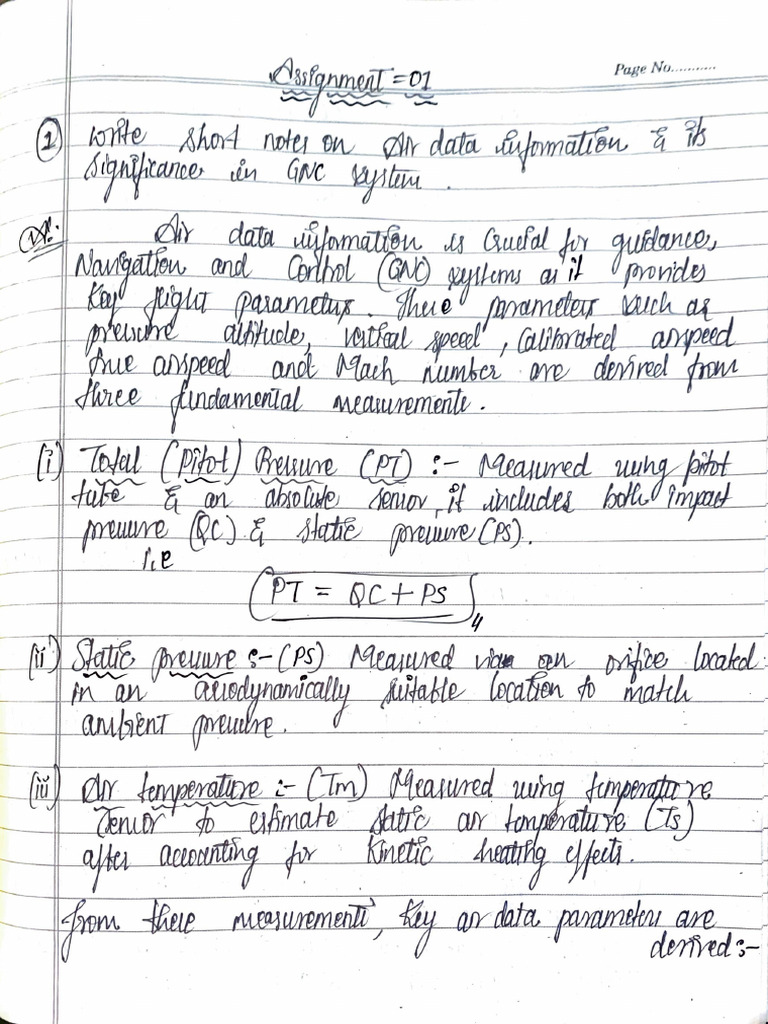 Page No...........
Assignment = 01
① Write short notes on Air data information & its
significance in GNC system.
Air data information is crucial for guidance,
Navigation and Control (GNC) systems as it provides
key flight parameters. These parameters such as
pressure altitude, vertical speed, calibrated airspeed
true airspeed and Mach number are derived from
three fundamental measurements.
(i) Total (Pitot) Pressure (PT) :- Measured using pitot
tube & an absolute sensor, it includes both impact
pressure (QC) & static pressure (PS).
i.e
PT = QC + PS
(ii) Static pressure :- (PS) Measured via an orifice located
in an aerodynamically suitable location to match
ambient pressure.
(iii) Air temperature :- (Tm) Measured using temperature
sensor to estimate static air temperature (Ts)
after accounting for kinetic heating effects.
from these measurements, key air data parameters are
derived :-